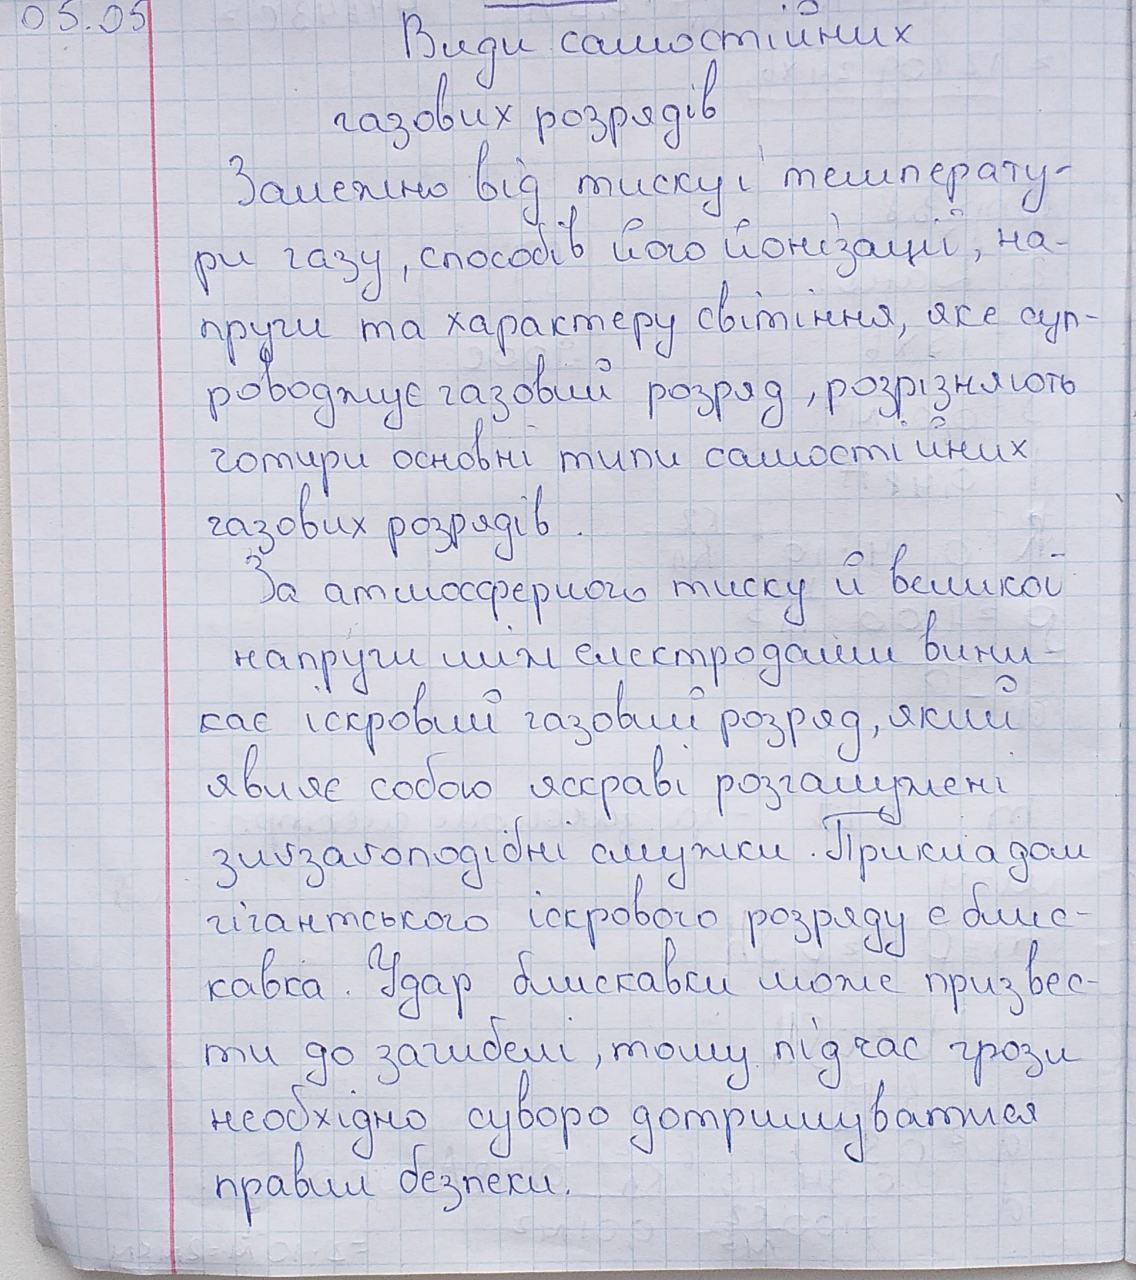 05.05
Види самостійних
газових розрядів
Залежно від тиску і температу-
ри газу, способів його йонізації, на-
пруги та характеру світіння, яке суп-
роводжує газовий розряд, розрізняють
чотири основні типи самостійних
газових розрядів.
За атмосферного тиску й великой
напруги між електродами вини-
кає іскровий газовий розряд, який
являє собою яскраві розгалужені
зигзагоподібні смужки. Прикладом
гігантського іскрового розряду є блис-
кавка. Удар блискавки може призвес-
ти до загибелі, тому під час грози
необхідно суворо дотримуватися
правил безпеки.